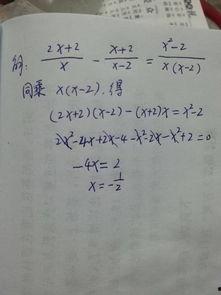 解: (2x+2)/x - (x+2)/(x-2) = (x²-2)/(x(x-2))
同乘 x(x-2), 得
(2x+2)(x-2)-(x+2)x=x²-2
2x²-4x+2x-4-x²-2x-x²+2=0
-4x=2
x=-1/2